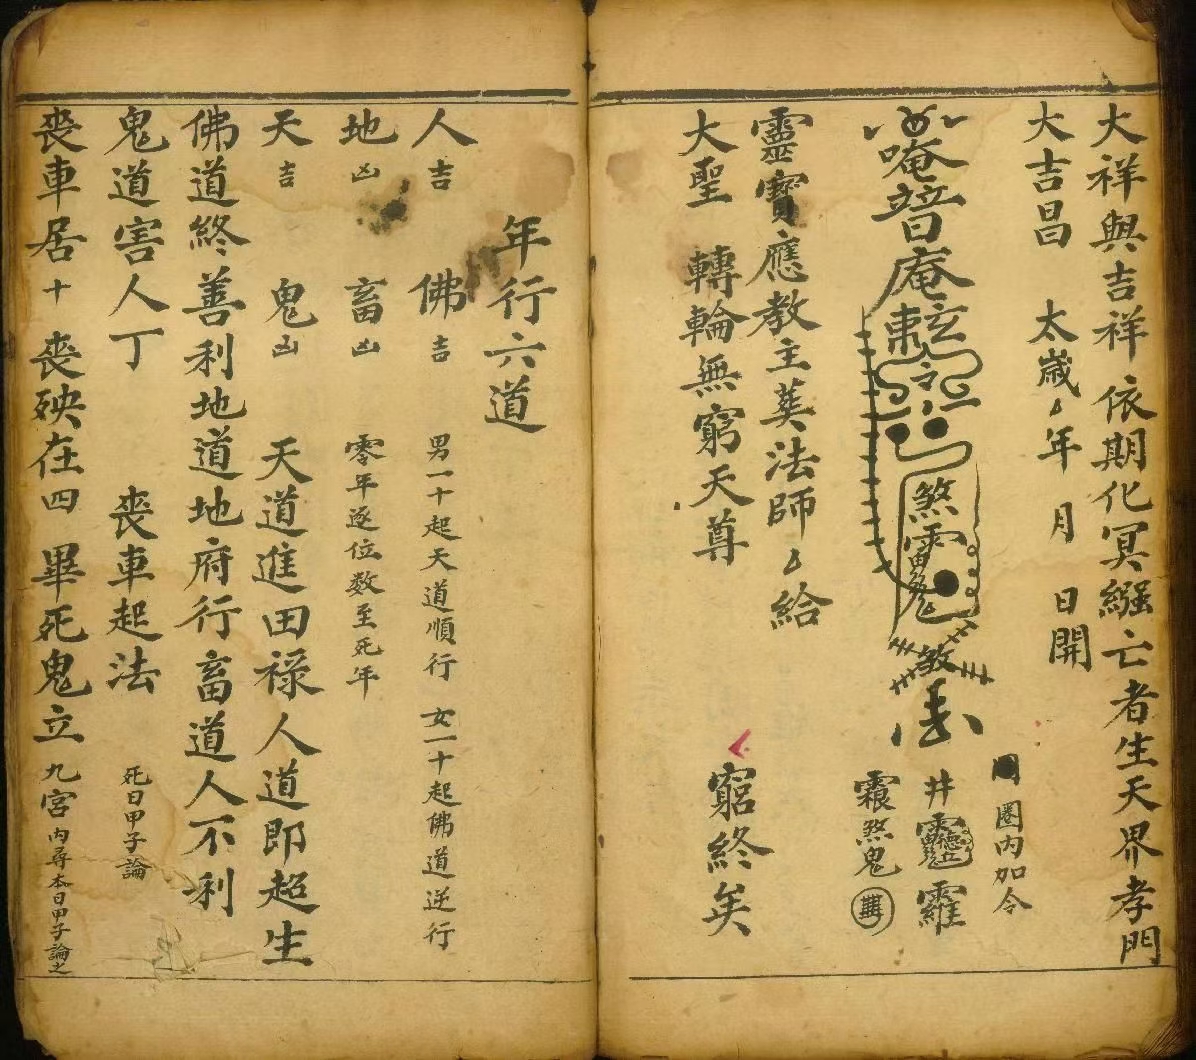 大祥與吉祥 依期化冥繈亡者生天界孝門
大吉昌 太歲厶年 月 日開
圈内加令
唵 庵
煞
井 羅
煞鬼
靈寶應教主葬法師厶給
大聖 轉輪無窮天尊 窮終矣
年行六道
人吉 佛吉 男一十起天道順行 女一十起佛道逆行
地凶 畜凶 零年逐位数至死年
天吉 鬼凶 天道進田祿人道即超生
佛道終善利地道地府行畜道人不利
鬼道害人丁 丧車起法 死日甲子論
丧車居十 丧殃在四 畢死鬼立 九宮内尋本日甲子論之